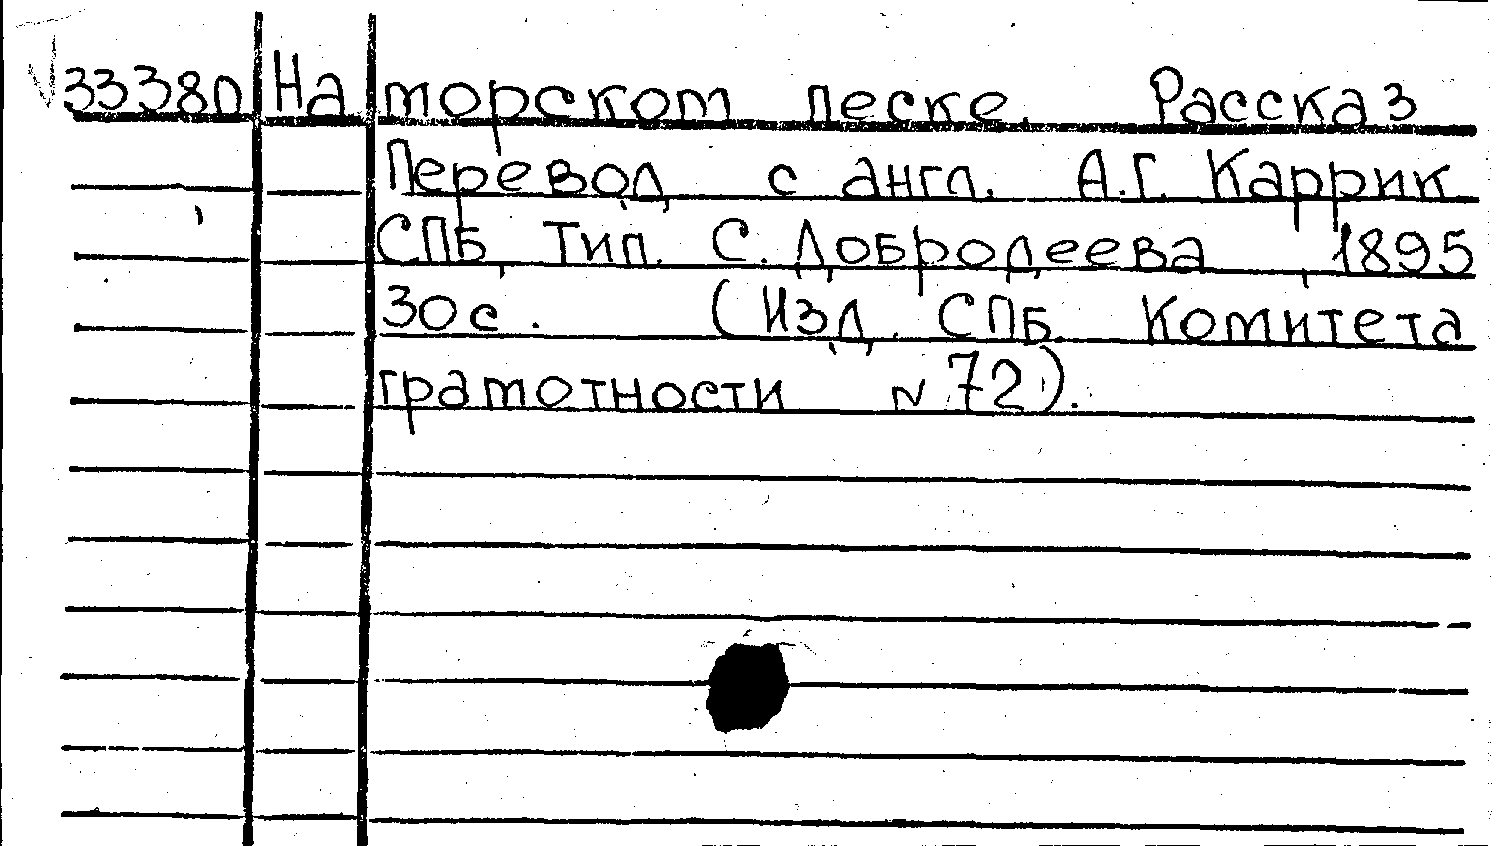 33380 На морском песке. Рассказ
Перевод с англ. А.Г. Каррик
СПБ, Тип. С. Добродеева, 1895
30 с. (Изд. СПБ. Комитета
грамотности N 72).